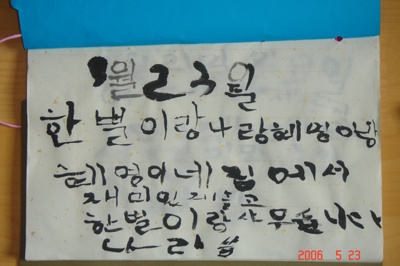 5월 23일
한별이랑나랑혜밍이랑
혜밍이네 집에서
재미있게놀고
한별이랑 사무습니다
나리씀
2006 5 23